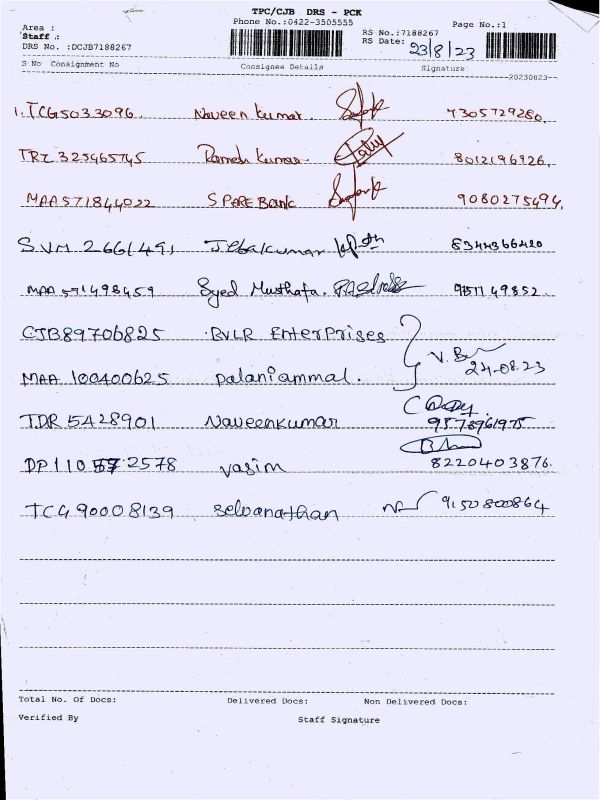 TPC/CJB DRS - PCK
Phone No.:0422-3505555
Page No.:1
Area :
Staff :
DRS No. :DCJB7188267
RS No.:7188267
RS Date: 23/8/23
S No Consignment No Consignee Details Signature
20230823
1. TCG5033096 Naveen kumar. 7305729280.
TRZ 325465745 Ramesh Kumar. 8012196926.
MAA571844022 SPARE Bank 9080275494.
SVM 2661491 Jebakumar 8344366420
MAA 571498459 Syed Musthafa. 951149852.
CJB89706825 BVLR Enterprises
MAA 100400625 Palaniammal. 24-08.23
TDR 5428901 Naveenkumar 9578961975
DP110 57 2578 vasim 8220403876.
TCG 90008139 selvanathan 9150800864
Total No. Of Docs: Delivered Docs: Non Delivered Docs:
Verified By Staff Signature